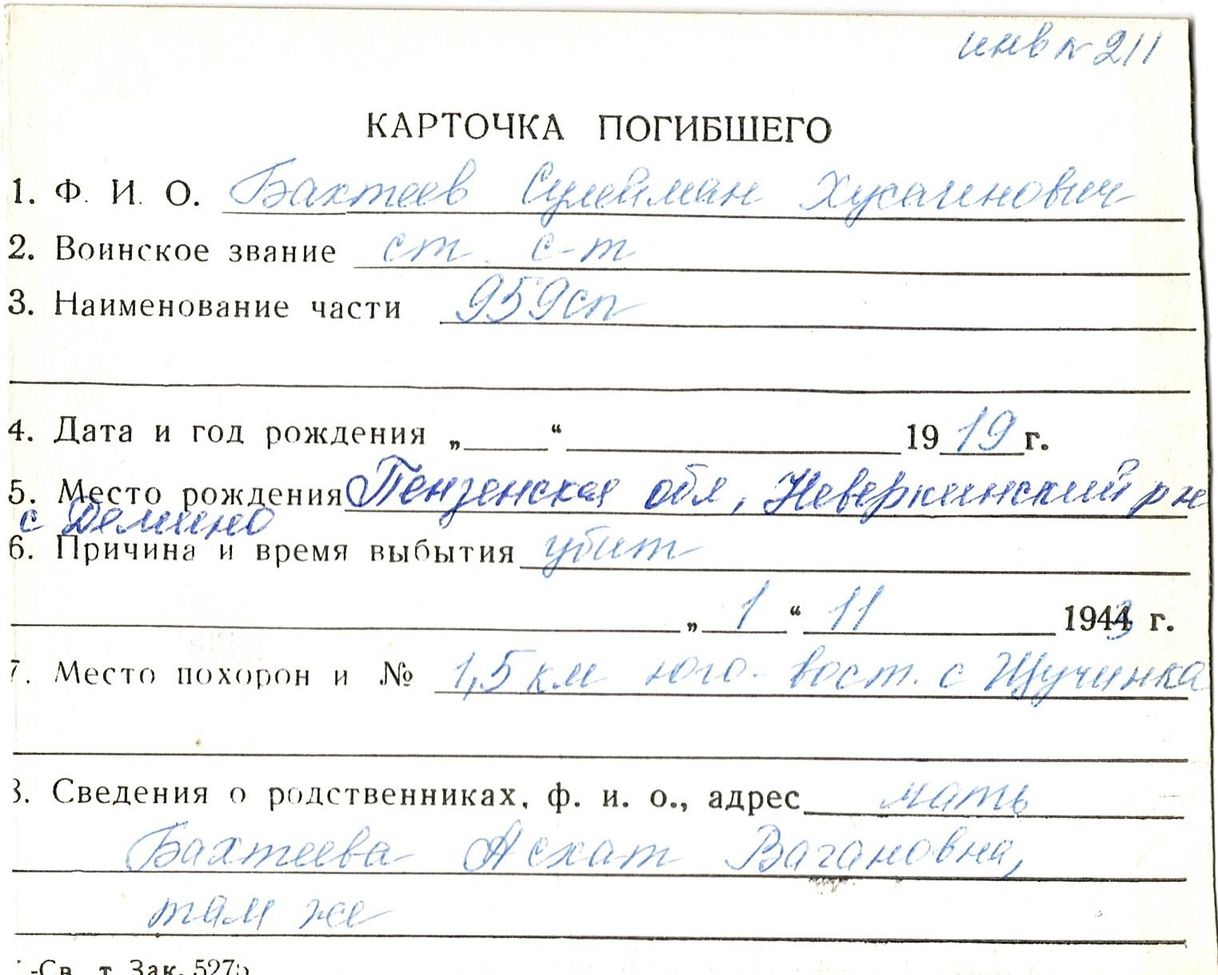 инв № 211
КАРТОЧКА ПОГИБШЕГО
1. Ф. И. О. Бахтеев Сулейман Хусаинович
2. Воинское звание ст. с-т
3. Наименование части 959сп
4. Дата и год рождения „ “ 1919 г.
5. Место рождения Пензенская обл, Неверкинский р-н
с Демино
6. Причина и время выбытия убит
„ 1 “ 11 1943 г.
7. Место похорон и № 1,5 км юго-вост. с Щучинка
8. Сведения о родственниках, ф. и. о., адрес мать
Бахтеева Асхат Вагановна,
там же
-Св. т. Зак. 5275